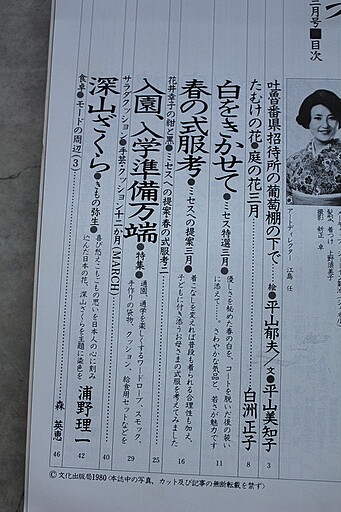 三月号■目次
アートディレクター 江島 任
吐魯番県招待所の葡萄棚の下で……絵●平山郁夫／文●平山美知子 3
たむけの花●庭の花三月……白洲正子 8
白をきかせて●ミセス特選三月●優しさを秘めた春の白を、コートを脱いだ後の装いに添えて……。さわやかな気品と、若さが魅力です 11
春の式服考●ミセスへの提案三月●着こなしを変えれば普段も着られる合理性も加え、子どもに付き添うお母さまの式服を考えてみました 16
花井幸子の紺と黒●ミセスへの提案・春の式服考二 25
入園、入学準備万端●特集●通園、通学を楽しくするワードローブ、スモック、手作りの袋物、クッション、給食用セットなどを 29
サラダクッション●手芸・クッション十二か月(MARCH) 40
深山ざくら●きもの弥生●喜び悲ごもごもの思いを日本人の心に刻み込んだ日本の花、深山ざくらを主題に染色を 浦野理一 42
食卓●モードの周辺(3) 森 英恵 46
©文化出版局1980〈本誌中の写真、カット及び記事の無断転載を禁ず〉